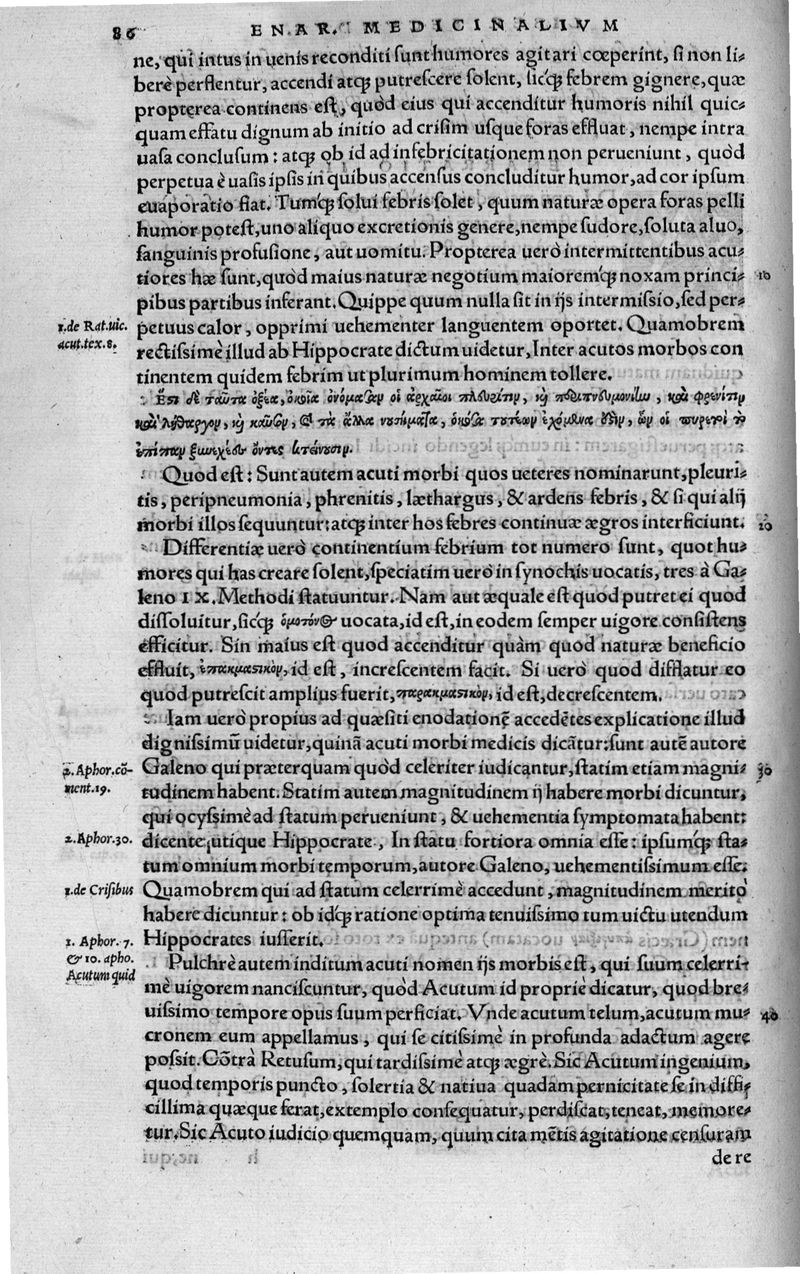 86 ENAR. MEDICINALIVM
ne, qui intus in uenis reconditi sunt humores agitari cœperint, si non li-
berè perflentur, accendi atq; putrescere solent, sicq; febrem gignere, quæ
propterea continens est, quòd eius qui accenditur humoris nihil quic-
quam effatu dignum ab initio ad crisim usque foras effluat, nempe intra
uasa conclusum: atq; ob id ad infebricitationem non perueniunt, quòd
perpetua è uasis ipsis in quibus accensus concluditur humor, ad cor ipsum
euaporatio fiat. Tumq́; solui febris solet, quum naturæ opera foras pelli
humor potest, uno aliquo excretionis genere, nempe sudore, soluta aluo,
sanguinis profusione, aut uomitu. Propterea uerò intermittentibus acu-
tiores hæ sunt, quòd maius naturæ negotium maioremq́; noxam princi- 10
pibus partibus inferant. Quippe quum nulla sit in ijs intermissio, sed per-
1. de Rat. uic. petuus calor, opprimi uehementer languentem oportet. Quamobrem
acut. tex. 8. rectissimè illud ab Hippocrate dictum uidetur, Inter acutos morbos con
tinentem quidem febrim ut plurimum hominem tollere.
Ἔστι δὲ ταῦτα ὀξέα, ὁκοῖα ὀνόμασαν οἱ ἀρχαῖοι πλευρῖτιν, κỳ περιπνευμονίην, καὶ φρενῖτιν
καὶ λήθαργον, κỳ καῦσον, καὶ τὰ ἄλλα νουσήματα, ὁκόσα τουτέων ἐχόμενα ἐστιν, ὧν οἱ πυρετοὶ τὸ
ἐπίπαν ξυνεχέες ὄντες κτείνουσιν.
Quod est: Sunt autem acuti morbi quos ueteres nominarunt, pleuri-
tis, peripneumonia, phrenitis, læthargus, & ardens febris, & si qui alij
morbi illos sequuntur: atq; inter hos febres continuæ ægros interficiunt. 20
Differentiæ uerò continentium febrium tot numero sunt, quot hu-
mores qui has creare solent, speciatim uerò in synochis uocatis, tres à Ga-
leno IX. Methodi statuuntur. Nam aut æquale est quod putret ei quod
dissoluitur, sicq́; ὁμότονος uocata, id est, in eodem semper uigore consistens
efficitur. Sin maius est quod accenditur quàm quod naturæ beneficio
effluit, ἐπακμαστικὸν, id est, increscentem facit. Si uerò quod difflatur eo
quod putrescit amplius fuerit, παρακμαστικὸν, id est, decrescentem.
Iam uerò propius ad quæsiti enodationẽ accedẽtes explicatione illud
dignissimũ uidetur, quinã acuti morbi medicis dicãtur: sunt autẽ autore
2. Aphor. cõ- Galeno qui præterquam quòd celeriter iudicantur, statim etiam magni- 30
ment. 19. tudinem habent. Statim autem magnitudinem ij habere morbi dicuntur,
qui ocyssimè ad statum perueniunt, & uehementia symptomata habent:
2. Aphor. 30. dicente utique Hippocrate, In statu fortiora omnia esse: ipsumq́; sta-
tum omnium morbi temporum, autore Galeno, uehementissimum esse.
1. de Crisibus Quamobrem qui ad statum celerrimè accedunt, magnitudinem meritò
habere dicuntur: ob idq́; ratione optima tenuissimo tum uictu utendum
1. Aphor. 7. Hippocrates iusserit.
& 10. apho. Pulchrè autem inditum acuti nomen ijs morbis est, qui suum celerri-
Acutum quid mè uigorem nanciscuntur, quòd Acutum id propriè dicatur, quod bre-
uissimo tempore opus suum perficiat. Vnde acutum telum, acutum mu- 40
cronem eum appellamus, qui se citissimè in profunda adactum agere
possit. Cõtrà Retusum, qui tardissimè atq; ægrè. Sic Acutum ingenium,
quod temporis puncto, solertia & natiua quadam pernicitate se in diffi-
cillima quæque ferat, extemplo consequatur, perdiscat, teneat, memore-
tur. Sic Acuto iudicio quemquam, quum cita mẽtis agitatione censuram
de re